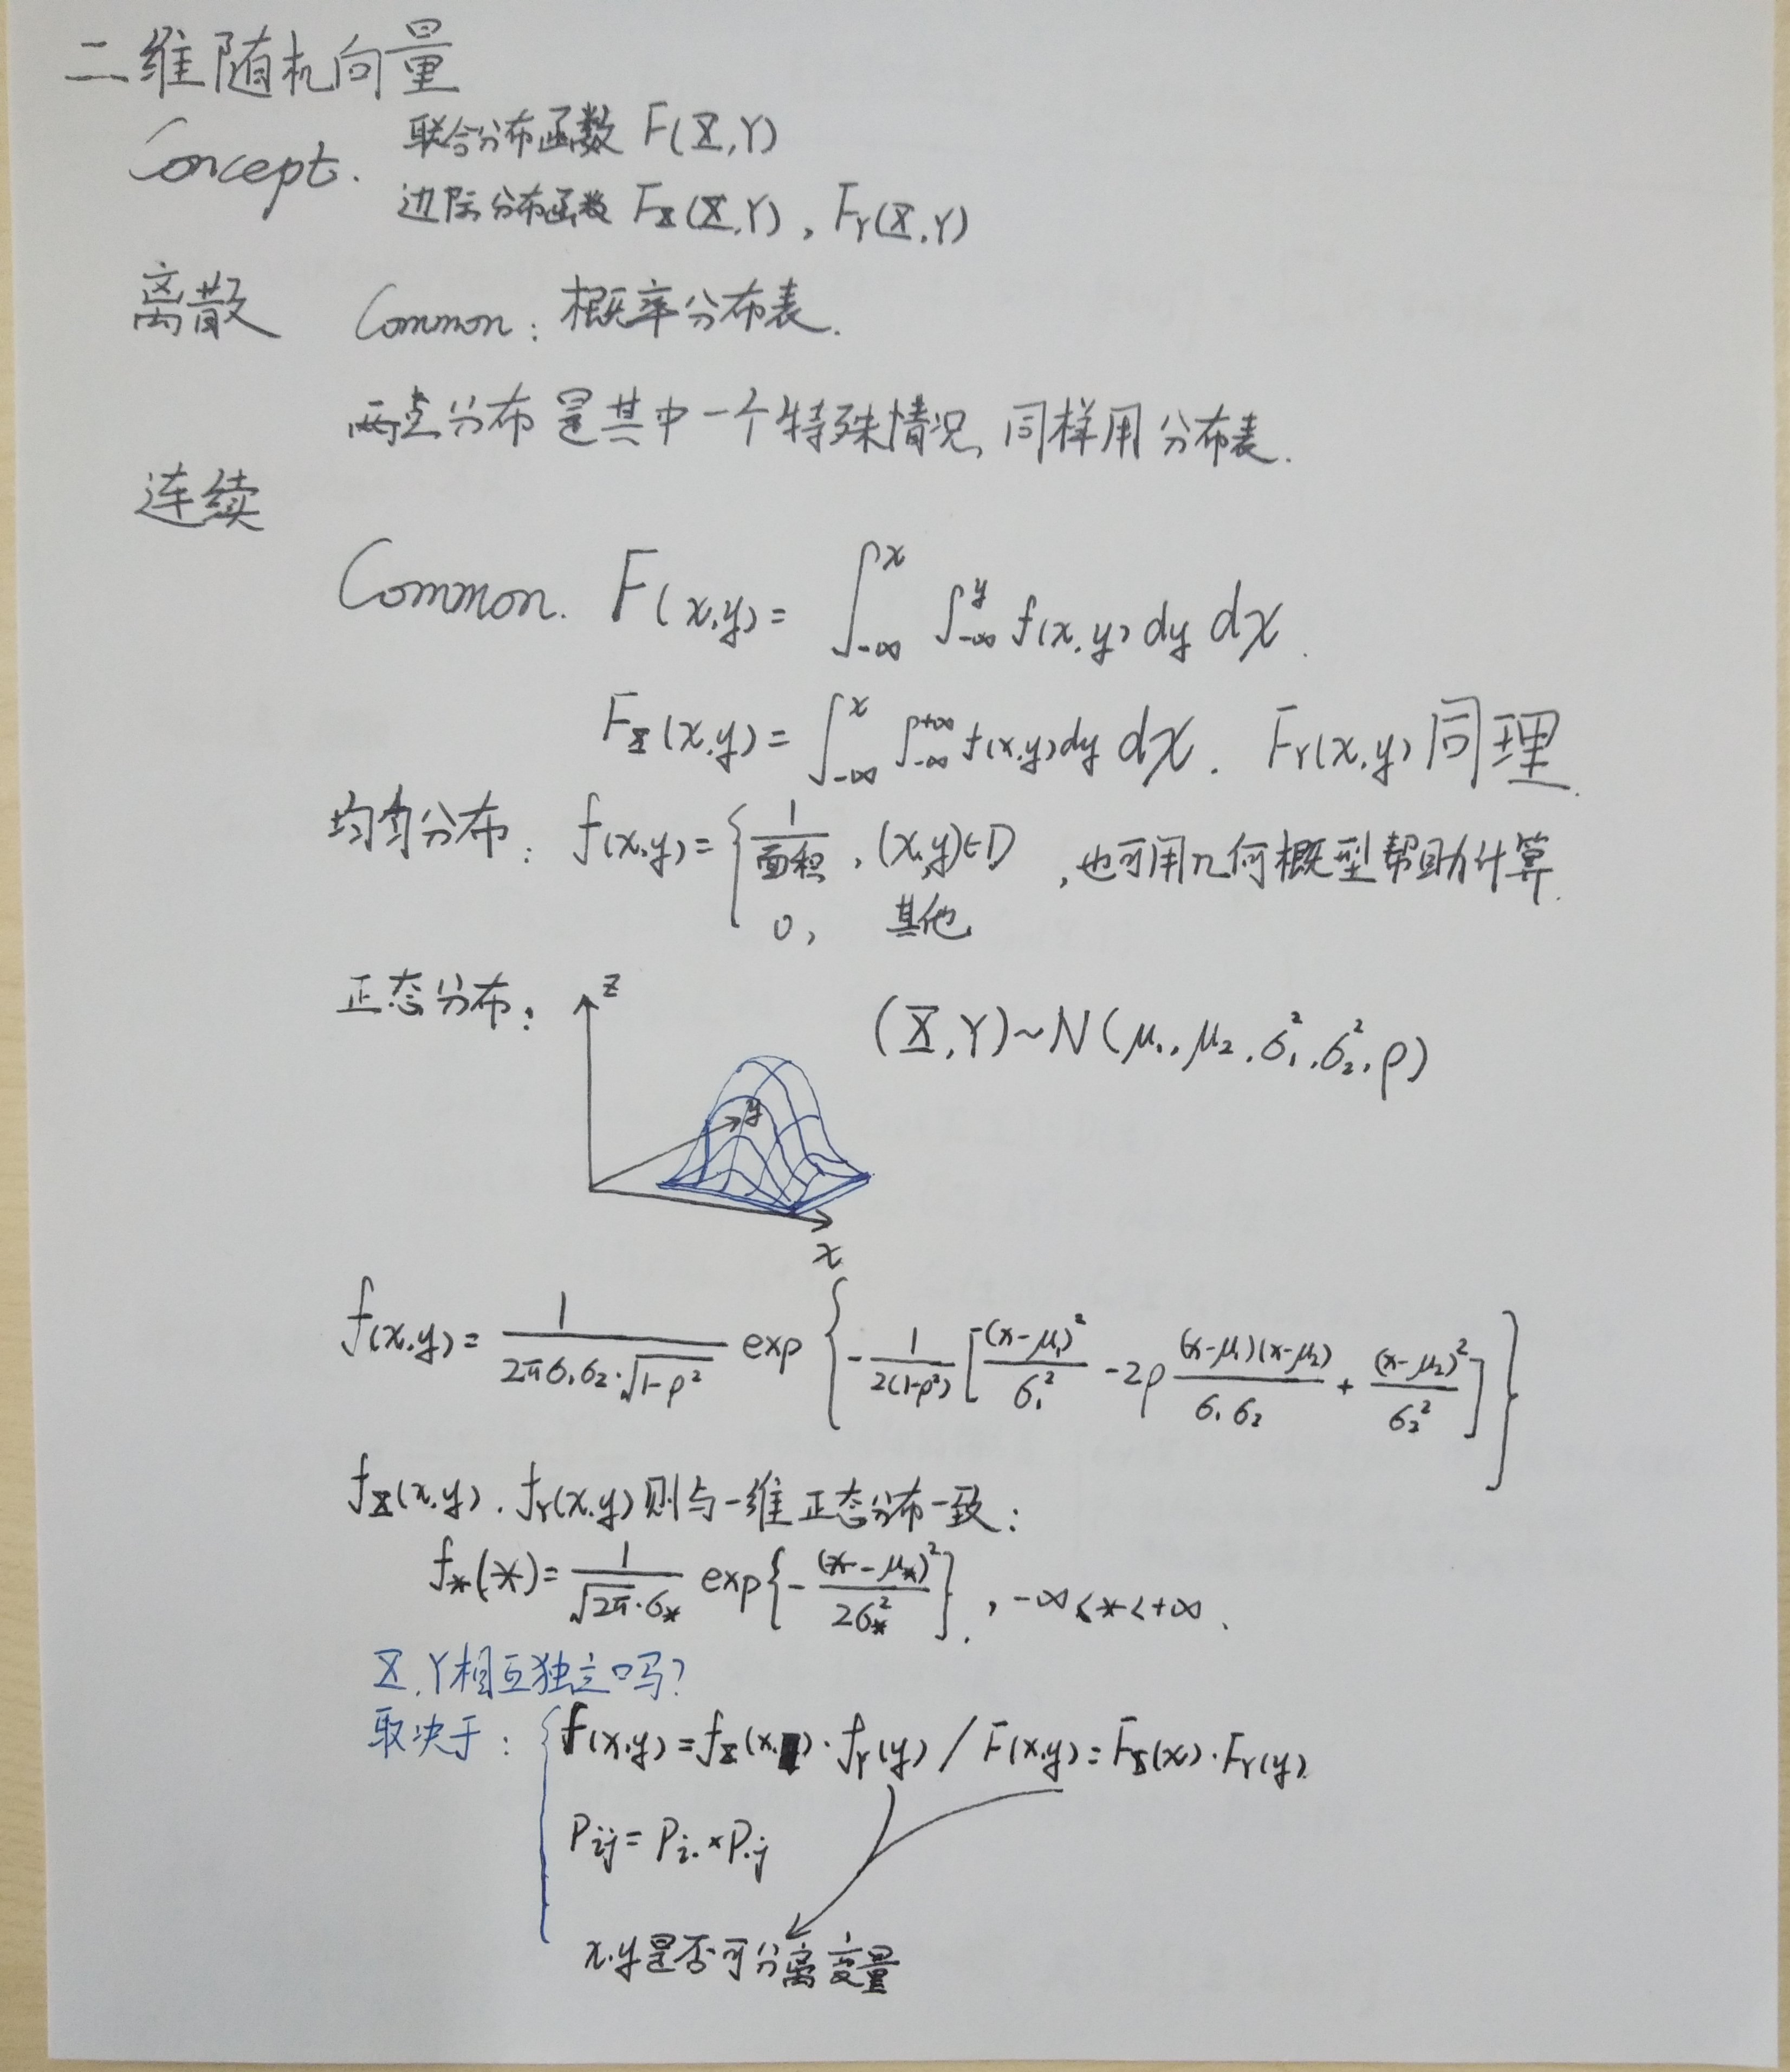 二维随机向量
Concept. 联合分布函数 F(X,Y)
边际分布函数 F_X(X,Y), F_Y(X,Y)
离散 Common: 概率分布表.
两点分布是其中一个特殊情况, 同样用分布表.
连续
Common. F(x,y)= ∫_{-∞}^{x} ∫_{-∞}^{y} f(x,y) dy dx.
F_X(x,y)= ∫_{-∞}^{x} ∫_{-∞}^{+∞} f(x,y) dy dx. F_Y(x,y) 同理.
均匀分布: f(x,y)= { 1/面积, (x,y)∈D ,也可用几何概型帮助计算.
0, 其他
正态分布: z (X,Y)~N(μ₁, μ₂, σ₁², σ₂², ρ)
y
x
f(x,y)= 1/(2πσ₁σ₂·√(1-ρ²)) exp { -1/(2(1-ρ²)) [ (x-μ₁)²/σ₁² -2ρ (x-μ₁)(x-μ₂)/(σ₁σ₂) + (x-μ₂)²/σ₂² ] }
f_X(x,y), f_Y(x,y) 则与一维正态分布一致:
f_*(*)= 1/(√2π·σ_*) exp{ -(*-μ_*)²/(2σ_*²) }, -∞<*<+∞.
X,Y相互独立吗?
取决于: { f(x,y)=f_X(x)·f_Y(y) / F(x,y)=F_X(x)·F_Y(y)
P_{ij}=P_{i·}×P_{·j}
x,y是否可分离变量